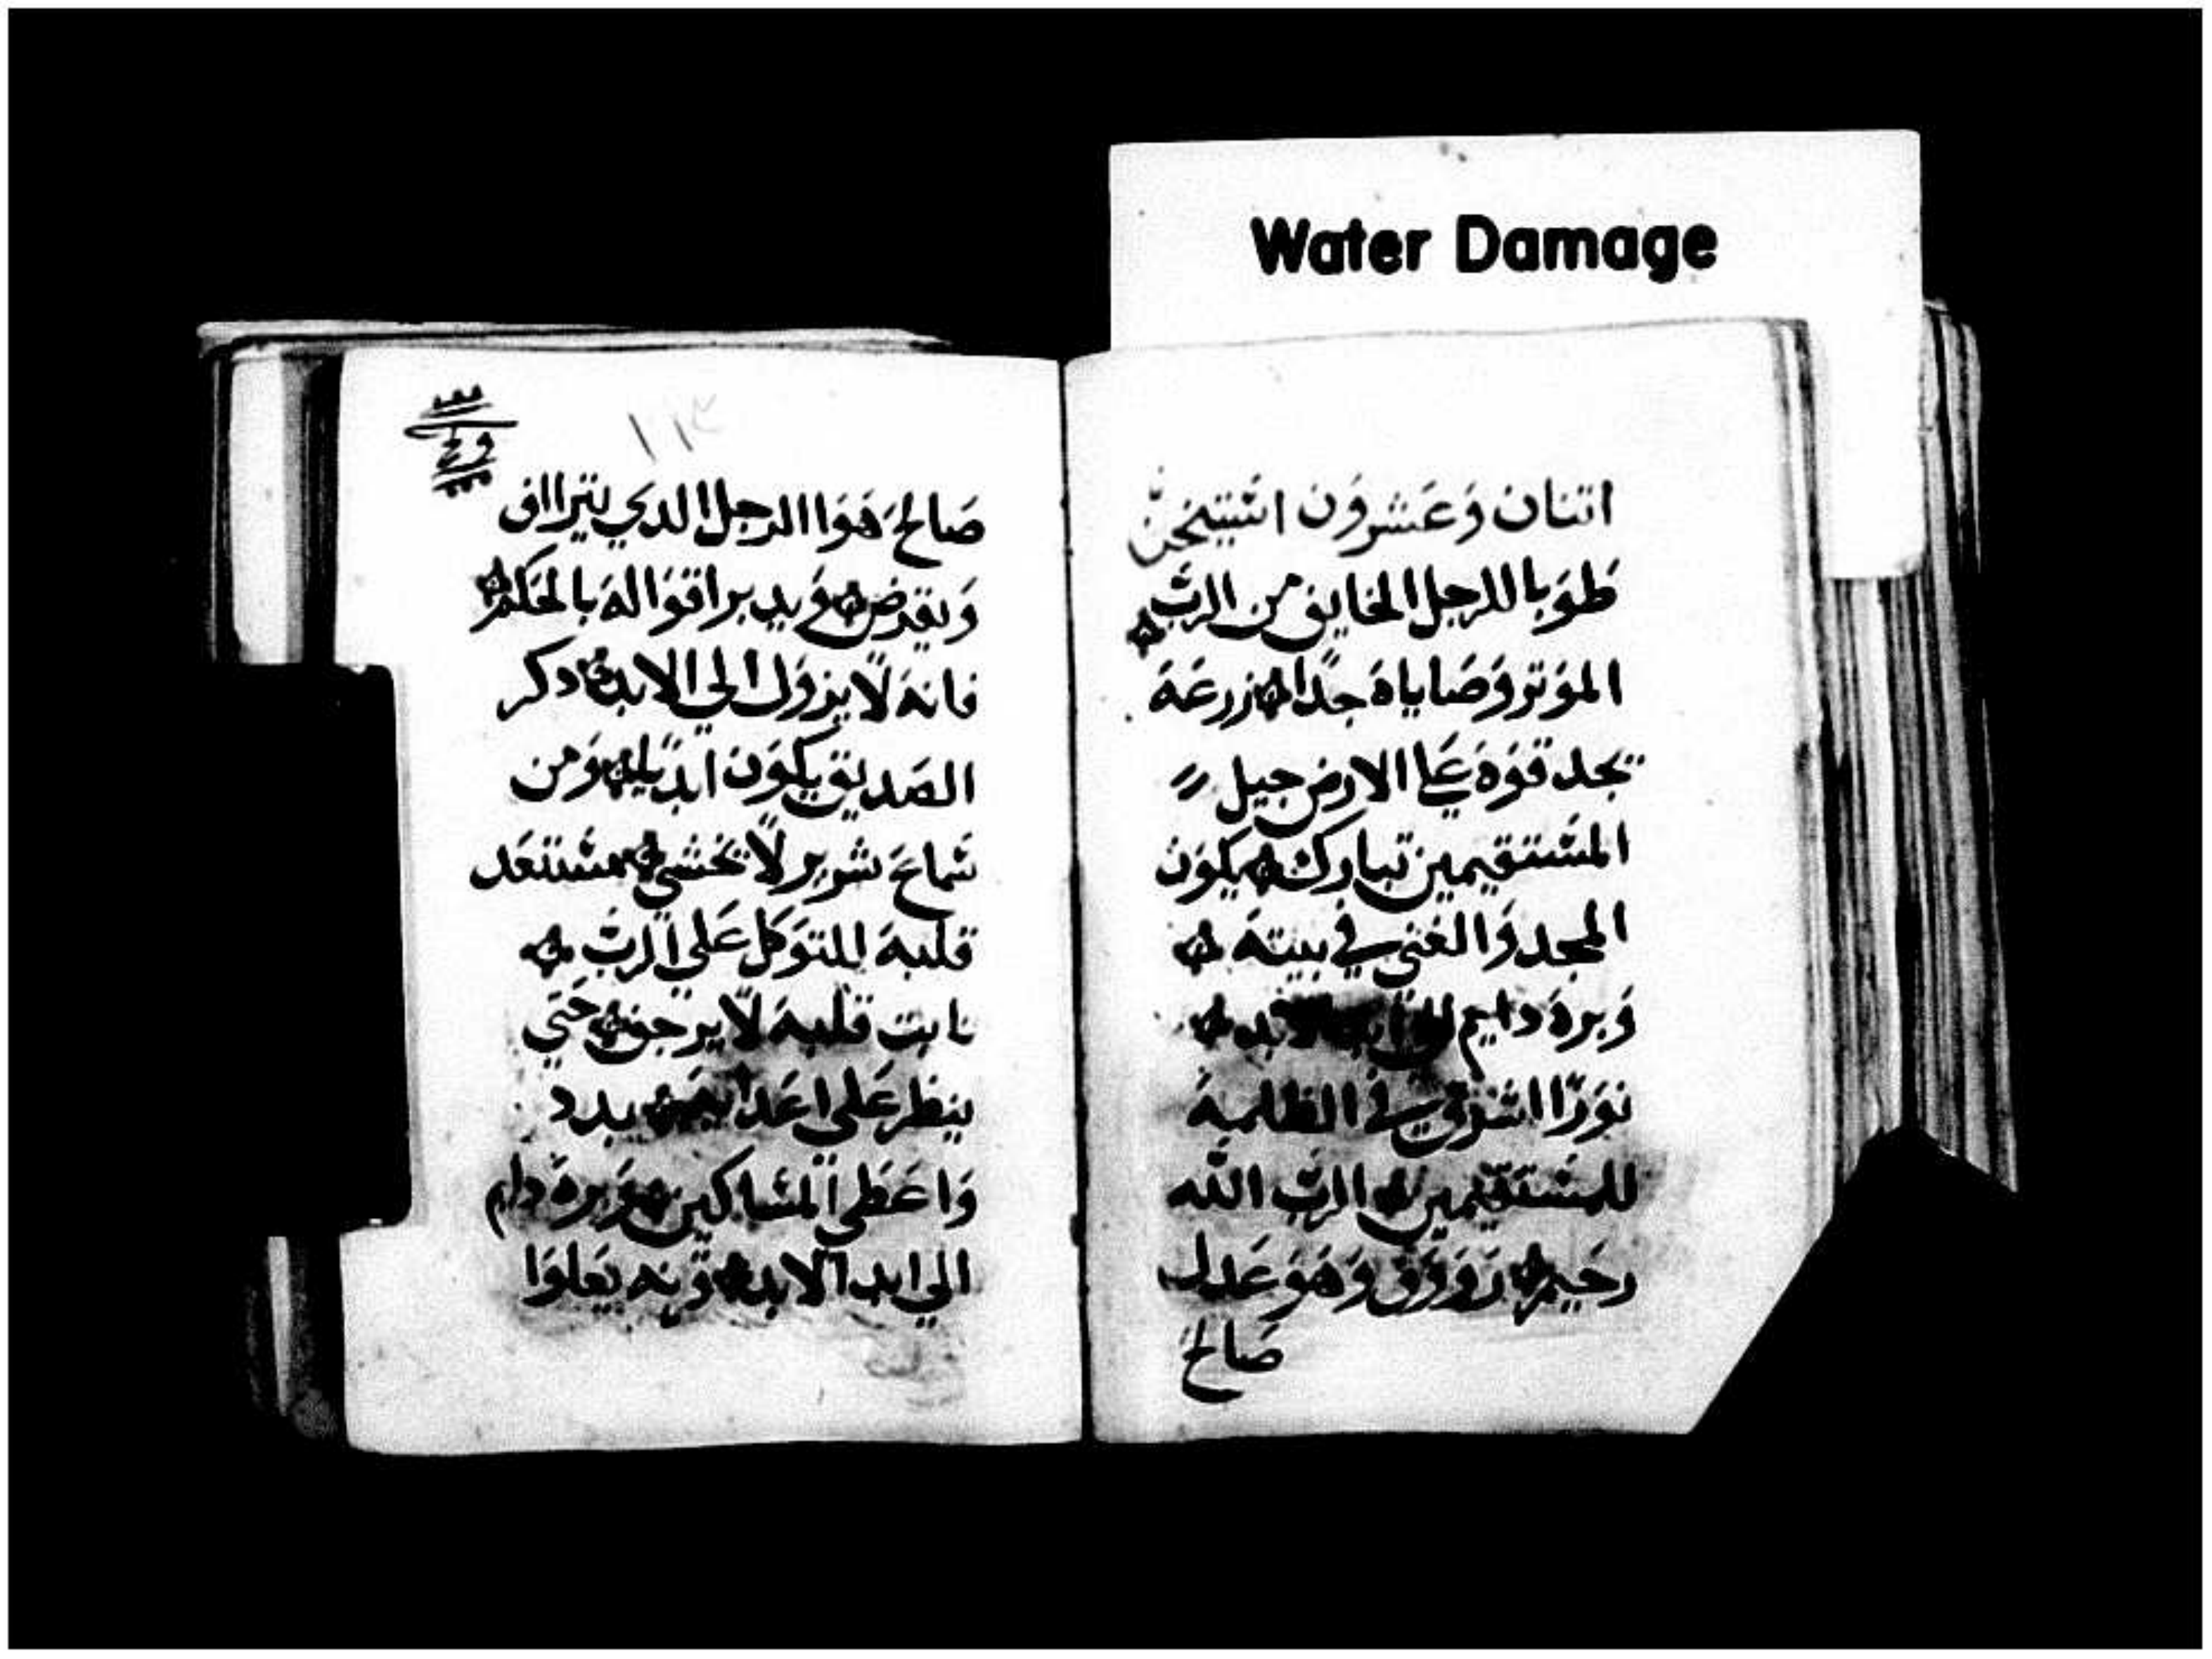 Water Damage
اتنان وَعَشروَن استيخن
طوَبا للرجل الخايف من الربَ
الموَتر وَصَاياهَ جدًا زرعَهَ
يجد قوَهَ عَلي الارض جيل
المسَتقيمين تبارك يكوَن
المجد وَالغني في بيتهَ
وَبرهَ دايم الابد
نوَرًا اشرق في الظلمهَ
للمسَتقيمين الربَ اللَه
رحَيم رَووَف وَهوَ عَدل
صَالح
١١٣
صَالحَ هَوَا الرجل الدي يتراف
وَيقرض وَيدبر اقوَالهَ بالحَكم
فانهَ لًا يزوَل الي الابد دكر
الصَديق يكوَن ابديا وَمن
سَماعَ شرير لًا يخشي مسَتعَد
قلبهَ المتوَكل عَلي الربَ
تابت قلبهَ لًا يرجف حَتي
ينظر عَلي اعَدايهَ يبدد
وَاعَطي المسَاكين وَبرهَ دايم
الي ابد الابد وَقرنه يَعلوَا